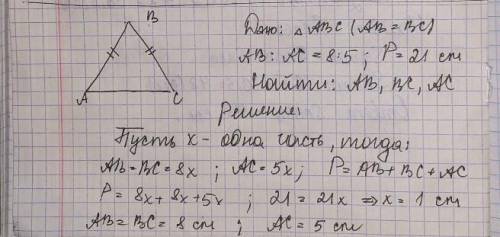 B
Дано: △ ABC (AB = BC)
AB : AC = 8:5 ; P = 21 cm
Найти: AB, BC, AC
A C
Решение:
Пусть x - одна часть, тогда:
AB = BC = 8x ; AC = 5x ; P = AB + BC + AC
P = 8x + 8x + 5x ; 21 = 21x ⇒ x = 1 cm
AB = BC = 8 cm ; AC = 5 cm